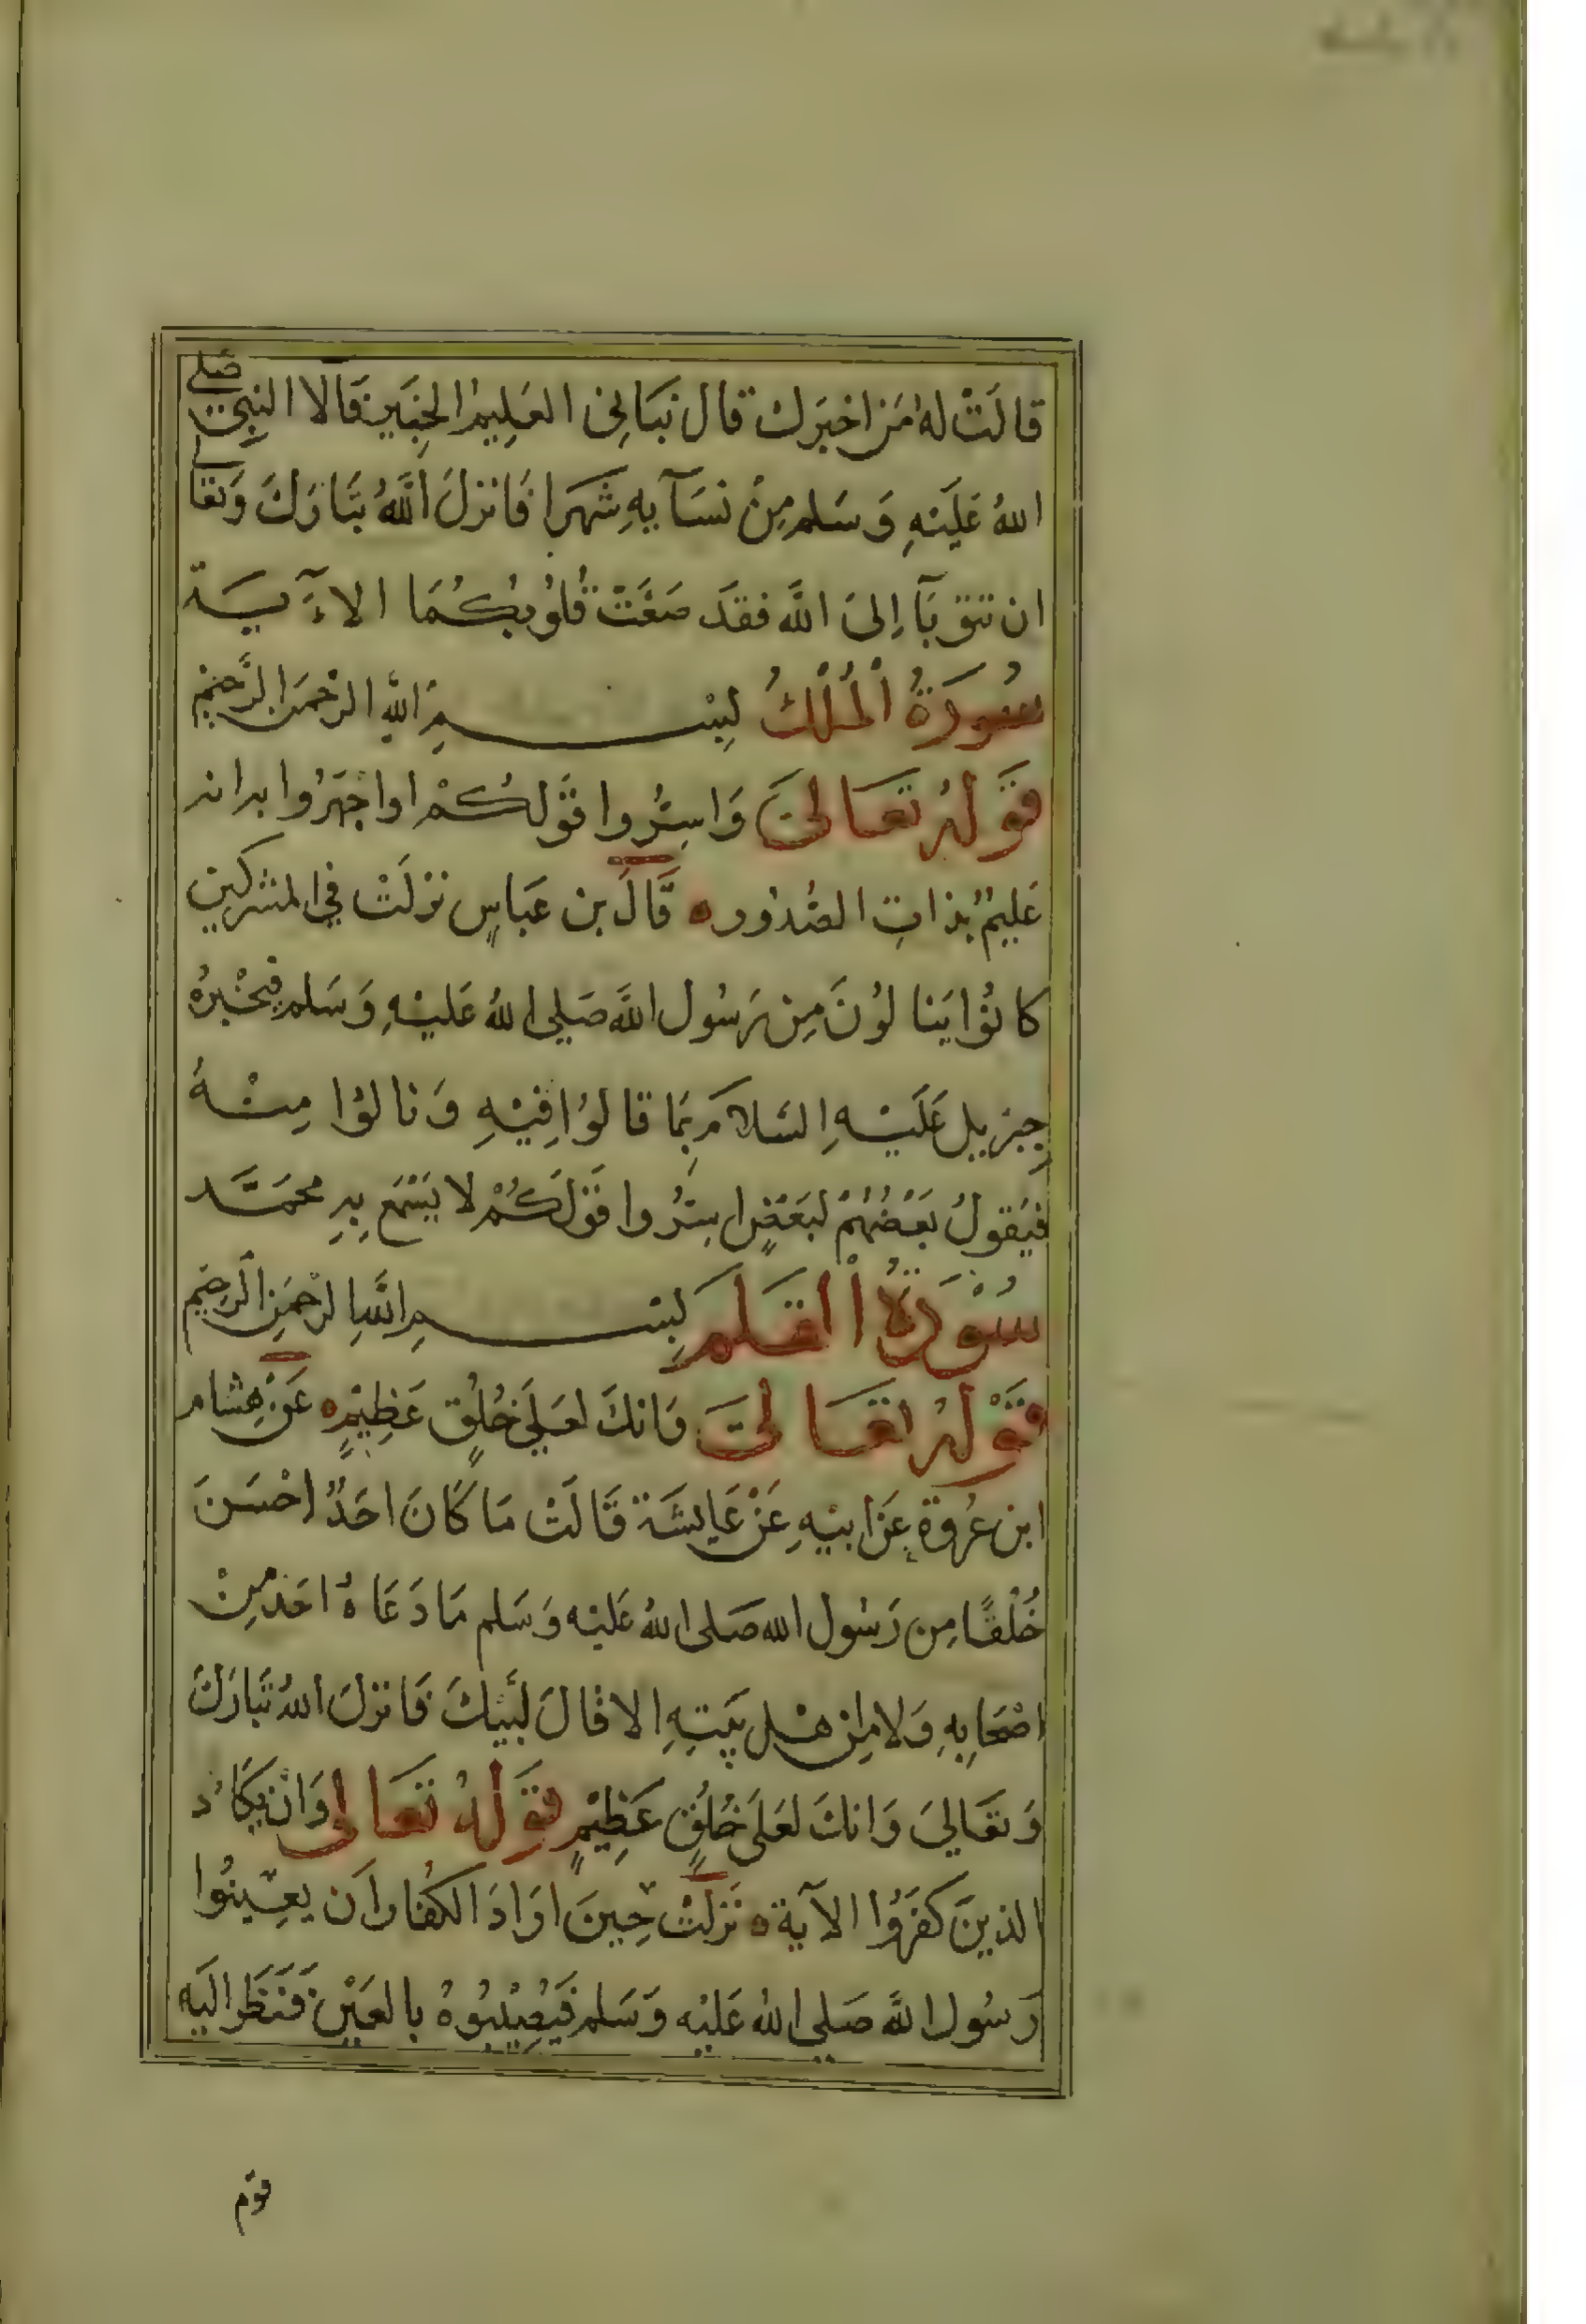 قالَتْ لهُ مَن اخبَرك قال نبانِى العَلِيمُ الخبَير قال الا النبِي صَلى
اللهُ عَليَهِ وَسَلم مِنْ نسَآيهِ شَهرا فَانزلَ اللَّهُ تبَارَكَ وَتعَالى
ان تتوبَآ اِلىَ اللَّه فقدَ صَغَتْ قُلوُبكُمَا الاَيَة
سُورَةُ الْمُلْكُ بِسْمِ اللَّهِ الرحْمَن الرَّحيم
قَولهُ تعَالىَ وَاسِرُّوا قوَلَكُمْ اواجهَرُوا به انه
عَليمٌ بذاتِ الصُدُور ه قَالَ بن عَباسٍ نزلَتْ في المشركين
كانوُا يَنالوُنَ مِن رَسُول اللَّه صَلى اللهُ عَليْهِ وَسَلم فيخْبرهُ
جبرَيل عَلَيْهِ السَلامَ بمَا قالوُا فِيْهِ وَنالوُا مِنْهُ
فيَقولُ بَعْضُهُمْ لبَعَضٍ اسِرُّوا قَوْلَكُمْ لا يَسَمَع بهِ محمَّد
سُوْرَةُ الْقَلَم بِسْمِ اللَّهِ الرحْمَنِ الرَحِيم
قَوْلهُ تعَالىَ وَانكَ لعَلَى خُلُقٍ عَظِيْمٍ ه عَنْ هِشَام
ابن عُروة عَن ابيْهِ عَنْ عَايشَة قَالَتْ مَا كَانَ احَدٌ احْسَنَ
خُلْقًا مِن رَسُول الله صَلى اللهُ عَليْه وَسَلم مَا دَعَاهُ احَد مِنْ
اصْحَابِهِ وَلا مِن اهْل بَيتِهِ الا قَالَ لَبَّيْكَ فَانزلَ اللهُ تبَارَكَ
وَتعَالىَ وَانكَ لعَلَى خُلُقٍ عَظِيْمٍ قوَلهُ تَعَالى وَانْ يَكَادُ
الذينَ كَفَرُوُا الآية ه نَزلَتْ حِينَ ارَادَ الكُفار اَن يعِينُوا
رَسُول اللَّه صَلى اللهُ عَليْه وَسَلم فَيُصِيْبُوهُ بالعَيْن فَنَظَر اليَه
قوَم